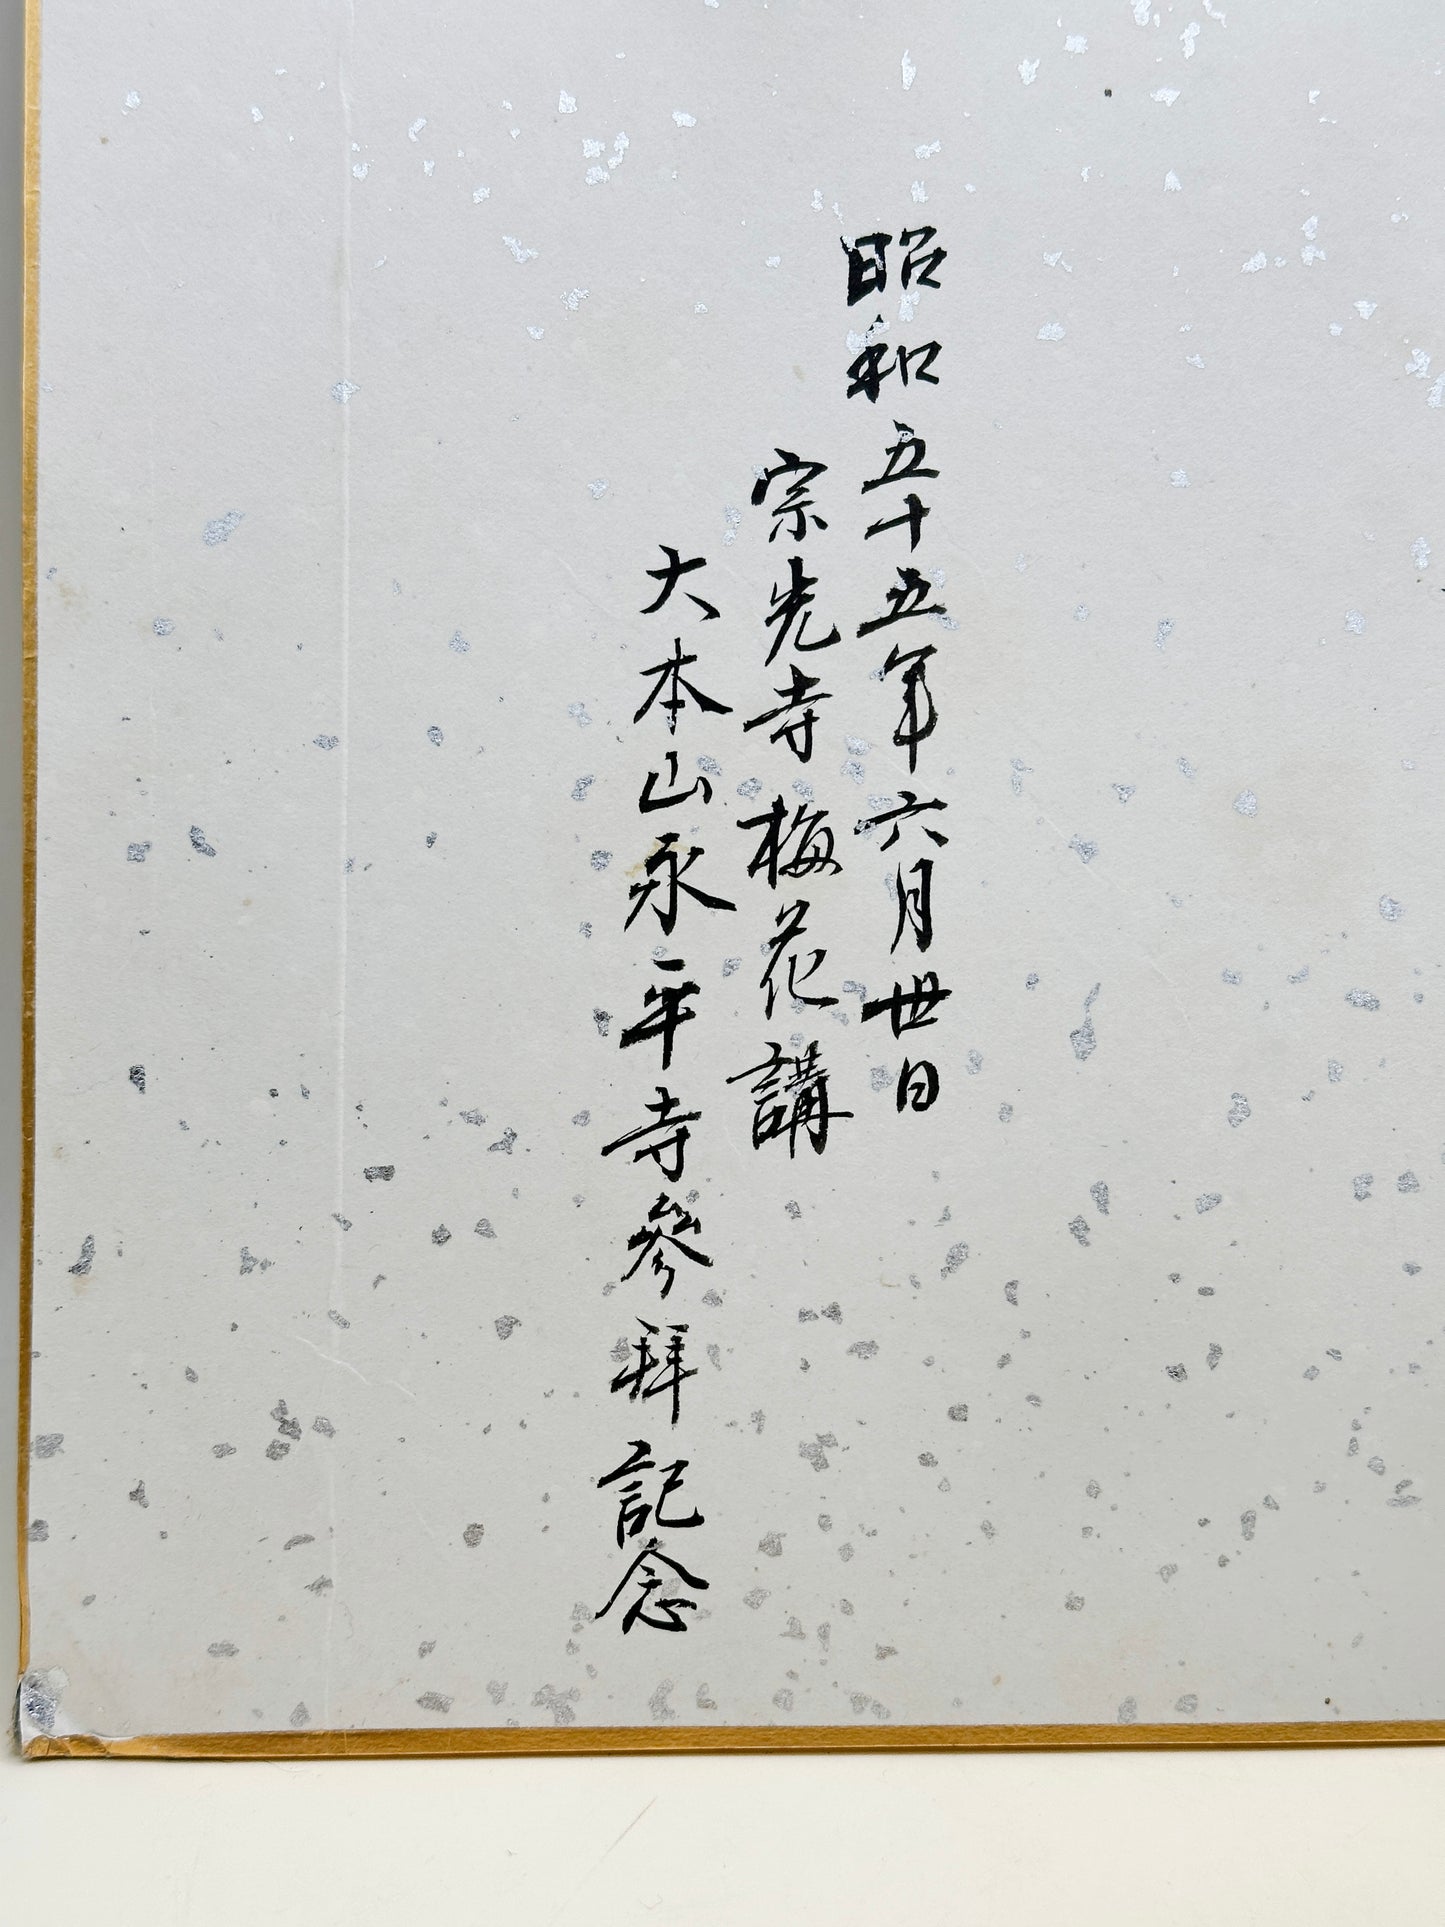 昭和五十五年六月廿日
宗光寺梅花講
大本山永平寺參拜記念